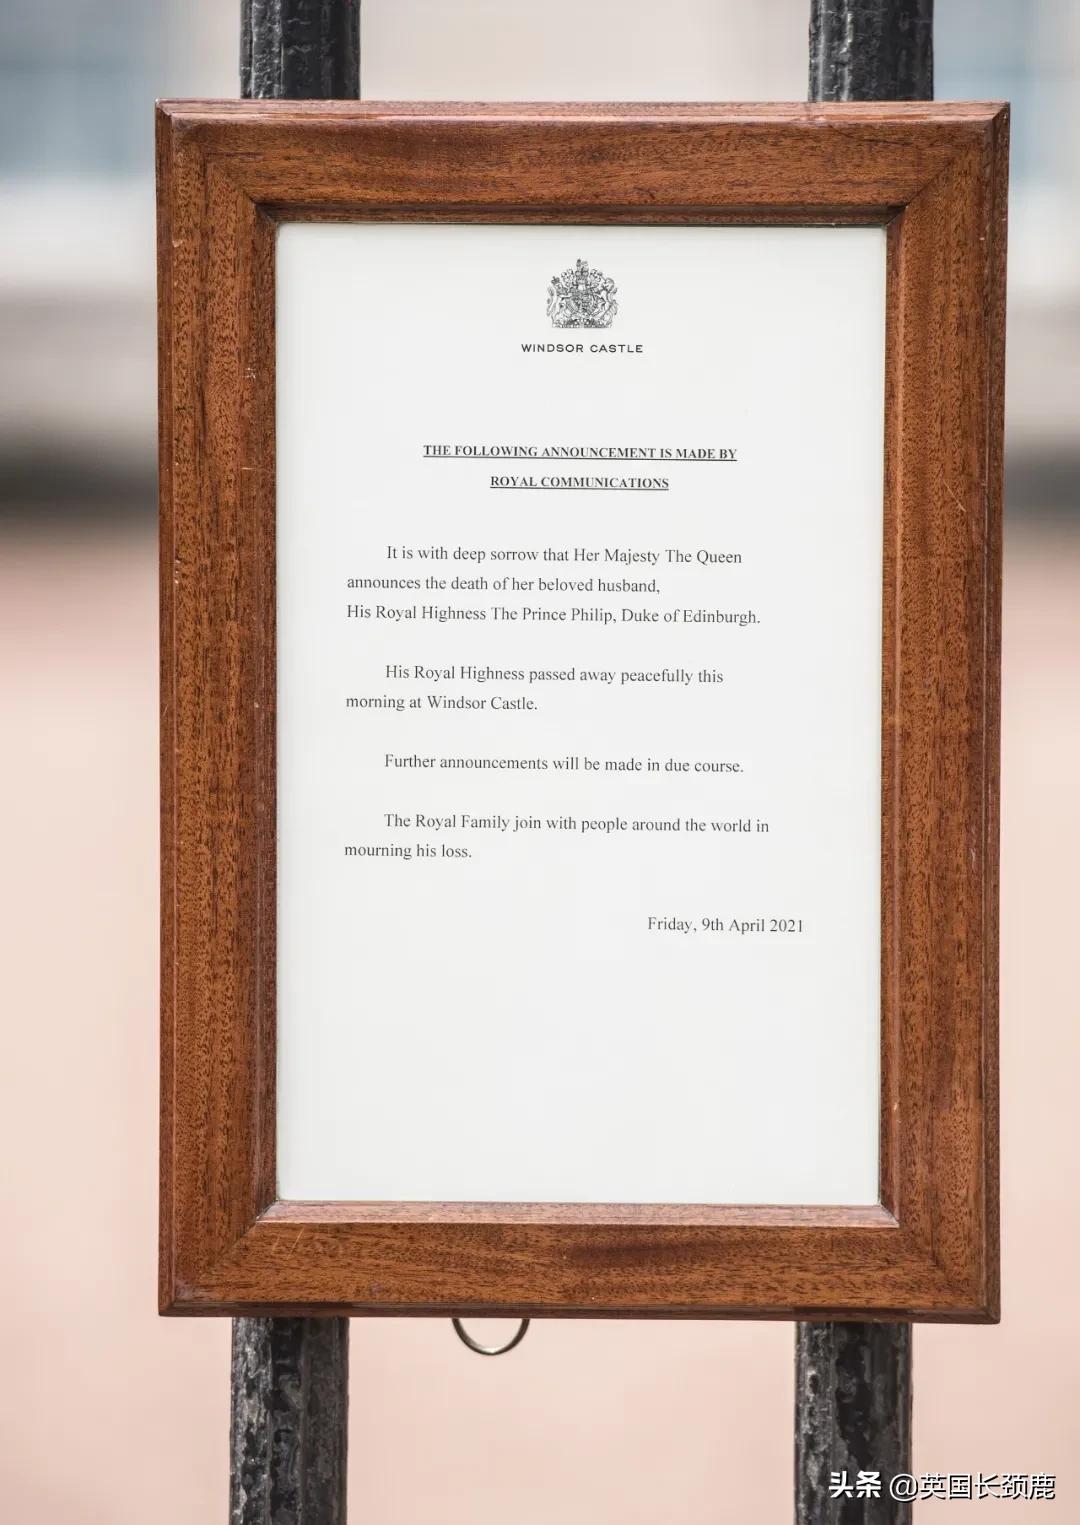 WINDSOR CASTLE
THE FOLLOWING ANNOUNCEMENT IS MADE BY
ROYAL COMMUNICATIONS
It is with deep sorrow that Her Majesty The Queen
announces the death of her beloved husband,
His Royal Highness The Prince Philip, Duke of Edinburgh.
His Royal Highness passed away peacefully this
morning at Windsor Castle.
Further announcements will be made in due course.
The Royal Family join with people around the world in
mourning his loss.
Friday, 9th April 2021
头条 @英国长颈鹿